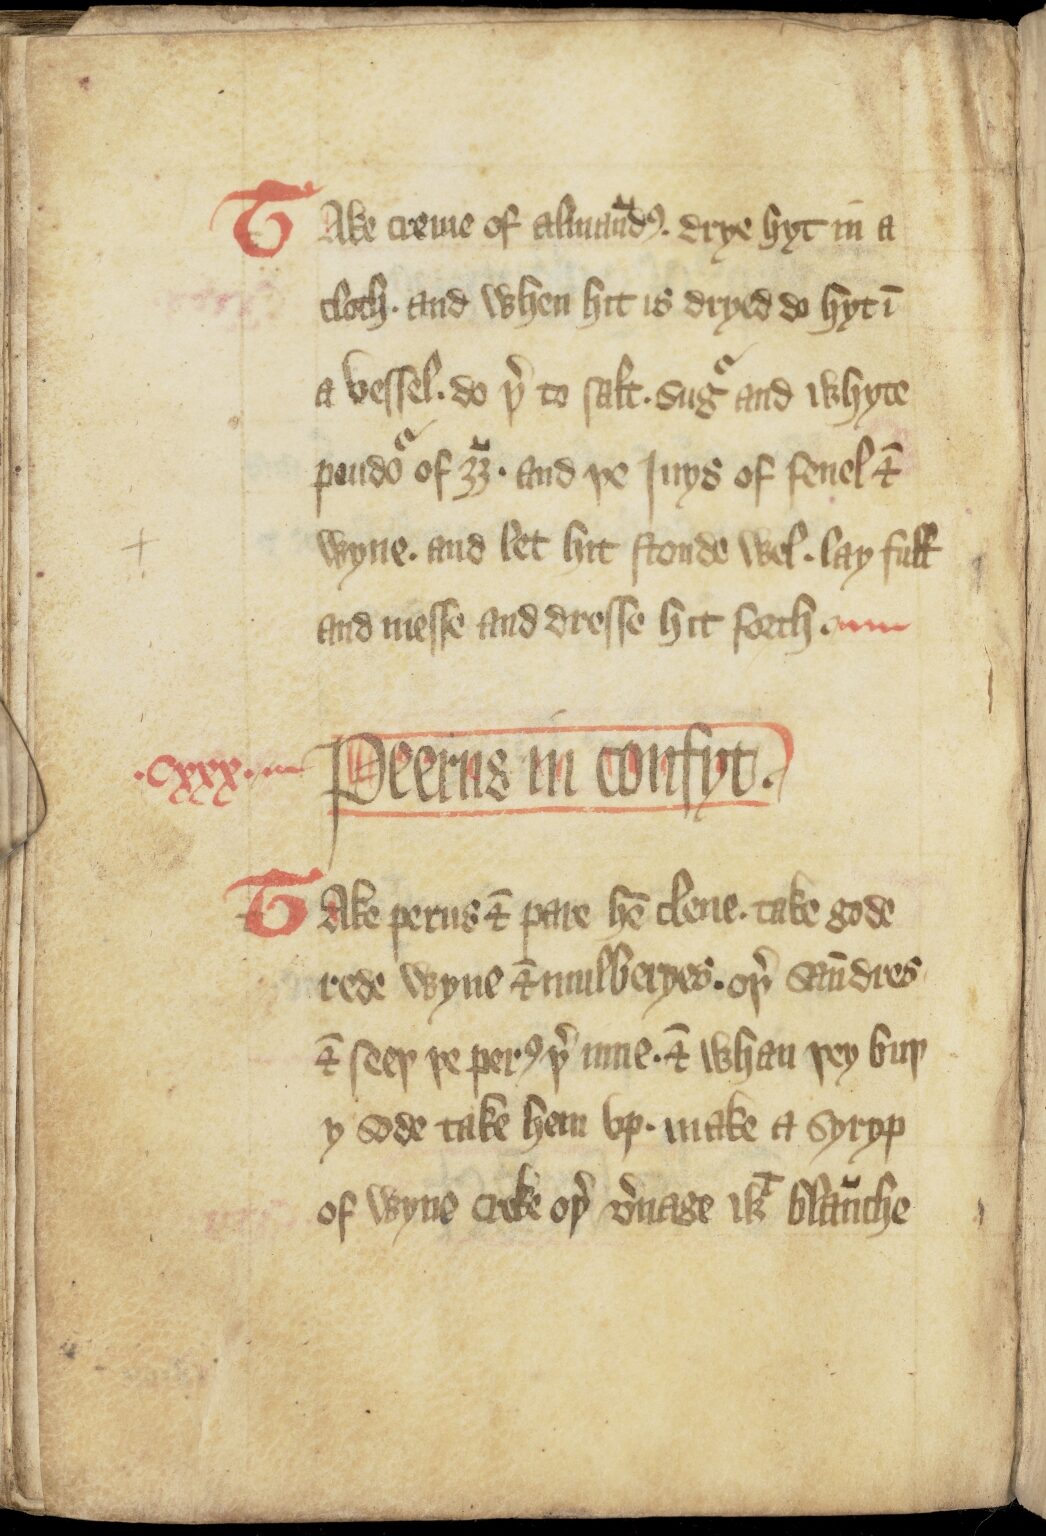 TAke creme of almaūdꝰ. drye hyt in a
cloth. and when hit is dryed do hyt ī
a vessel. do þ̉ to salt. sug͛ and whyte
poudo͛ of ȝȝ̄. and þe Juys of fenel ⁊
wyne. and let hit stonde wel. lay full
and messe and dresse hit forth.
.cxxx. Peerus in confyt.
TAke perus ⁊ pare hē clene. take gode
rede wyne ⁊ mulberyes. oþ̉ saūdres
⁊ seeþ þe perꝰ þ̉ inne. ⁊ whan þey buþ
y sode take hem vp. make a syryp
of wyne creke oþ̉ v̉nage wᵗ blaūche